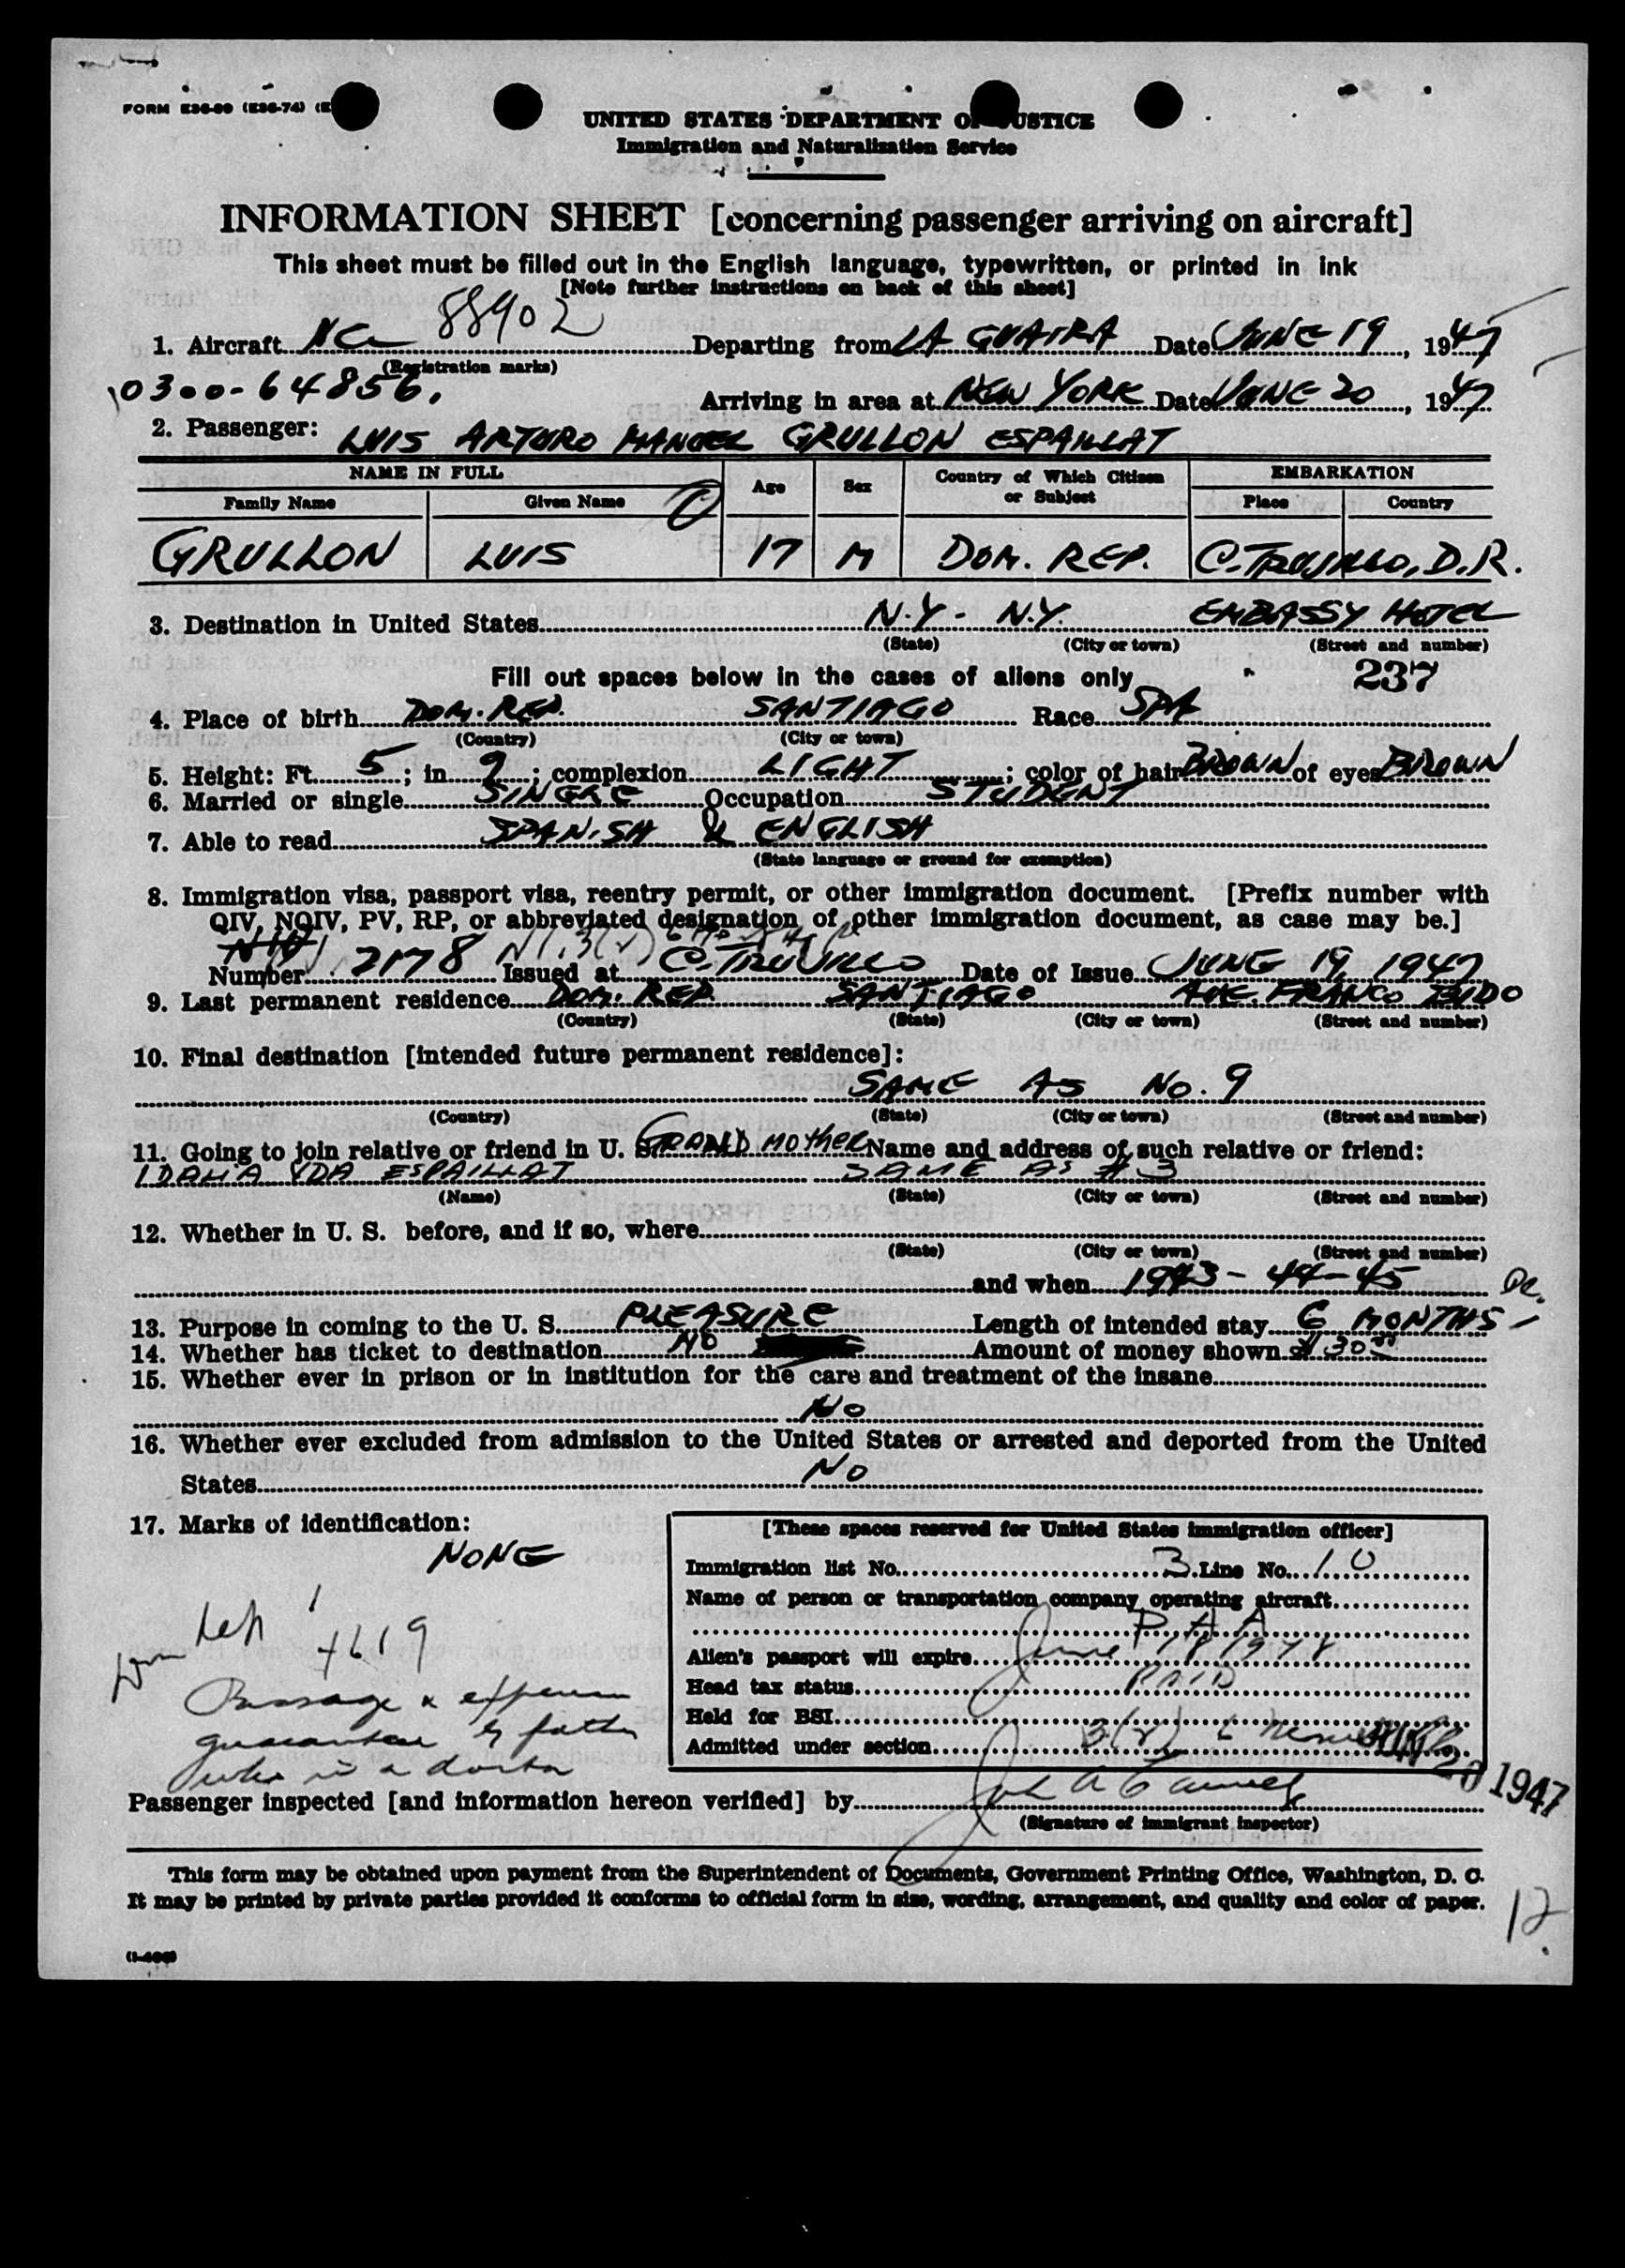 FORM E36-99 (E36-74)
UNITED STATES DEPARTMENT OF JUSTICE
Immigration and Naturalization Service
INFORMATION SHEET [concerning passenger arriving on aircraft]
This sheet must be filled out in the English language, typewritten, or printed in ink
[Note further instructions on back of this sheet]
1. Aircraft NC 88902 Departing from LA GUAIRA Date JUNE 19, 1947
(Registration marks)
0300-64856.
Arriving in area at NEW YORK Date JUNE 20, 1947
2. Passenger: LUIS ARTURO MANUEL GRULLON ESPAILLAT
NAME IN FULL Age Sex Country of Which Citizen or Subject EMBARKATION
Family Name Given Name Place Country
GRULLON LUIS 17 M DOM. REP. C. TRUJILLO, D.R.
3. Destination in United States N.Y. - N.Y. EMBASSY HOTEL
(State) (City or town) (Street and number)
Fill out spaces below in the cases of aliens only 237
4. Place of birth DOM. REP. SANTIAGO Race SPA
(Country) (City or town)
5. Height: Ft. 5; in. 9; complexion LIGHT; color of hair BROWN of eyes BROWN
6. Married or single SINGLE Occupation STUDENT
7. Able to read SPANISH & ENGLISH
(State language or ground for exemption)
8. Immigration visa, passport visa, reentry permit, or other immigration document. [Prefix number with
QIV, NQIV, PV, RP, or abbreviated designation of other immigration document, as case may be.]
Number 2178 Issued at C. TRUJILLO Date of Issue JUNE 19, 1947
9. Last permanent residence DOM. REP. SANTIAGO AVE. FRANCO BIDO
(Country) (State) (City or town) (Street and number)
10. Final destination [intended future permanent residence]:
SAME AS No. 9
(Country) (State) (City or town) (Street and number)
11. Going to join relative or friend in U. S. GRAND MOTHER Name and address of such relative or friend:
IDALIA VDA ESPAILLAT SAME AS # 3
(Name) (State) (City or town) (Street and number)
12. Whether in U. S. before, and if so, where
(State) (City or town) (Street and number)
and when 1943-44-45
13. Purpose in coming to the U. S. PLEASURE Length of intended stay 6 MONTHS
14. Whether has ticket to destination NO Amount of money shown $ 30
15. Whether ever in prison or in institution for the care and treatment of the insane
No
16. Whether ever excluded from admission to the United States or arrested and deported from the United
States No
17. Marks of identification:
NONE
[These spaces reserved for United States immigration officer]
Immigration list No. 3 Line No. 10
Name of person or transportation company operating aircraft
P A A
Alien's passport will expire June 18 1948
Head tax status PAID
Held for BSI
Admitted under section 3(2) 6
JUN 20 1947
4619
Passage & expenses
guarantee by father
who is a doctor
Passenger inspected [and information hereon verified] by
(Signature of immigrant inspector)
This form may be obtained upon payment from the Superintendent of Documents, Government Printing Office, Washington, D. C.
It may be printed by private parties provided it conforms to official form in size, wording, arrangement, and quality and color of paper.
12